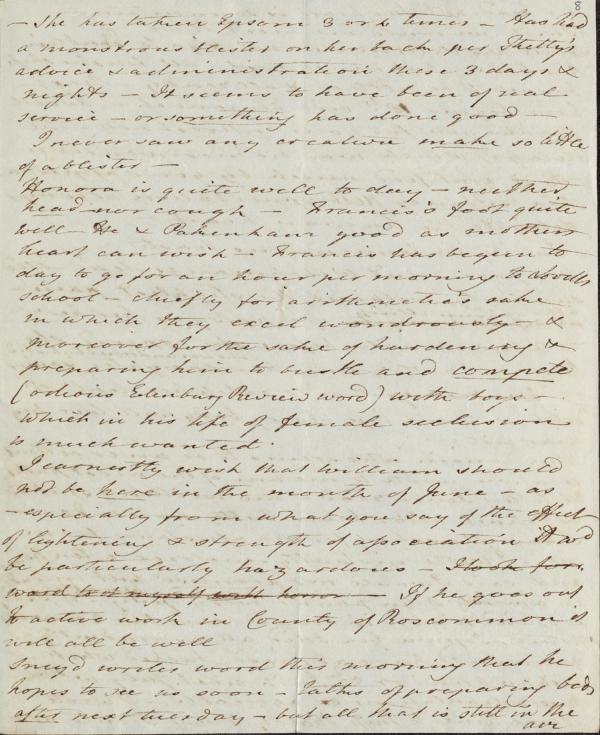 8
– She has taken Epsom 3 or 4 times – Has had
a monstrous blister on her back per Thilly's
advice & administration these 3 days &
nights – It seems to have been of real
service – or something has done good –
I never saw any creature make so little
of a blister –
Honora is quite well to day – neither
head nor cough – Francis's foot quite
well – He & Pakenham good as mothers
heart can wish – Francis has begun to
day to go for an hour per morning to Lovells
school – chiefly for arithmetic's sake
in which they excel wondrously – &
moreover for the sake of hardening &
preparing him to bustle and compete
(odious Edenburg Review word) with boys –
which in his life of female seclusion
is much wanted.
I earnestly wish that William should
not be here in the month of June – as
– especially from what you say of the effect
of lightening & strength of association it wd
be particularly hazardous – I look for
ward to it myself with horror – If he goes out
to active work in County of Roscommon it
will all be well
Sneyd writes word this morning that he
hopes to see us soon – talks of preparing beds
after next tuesday – but all that is still in the
air